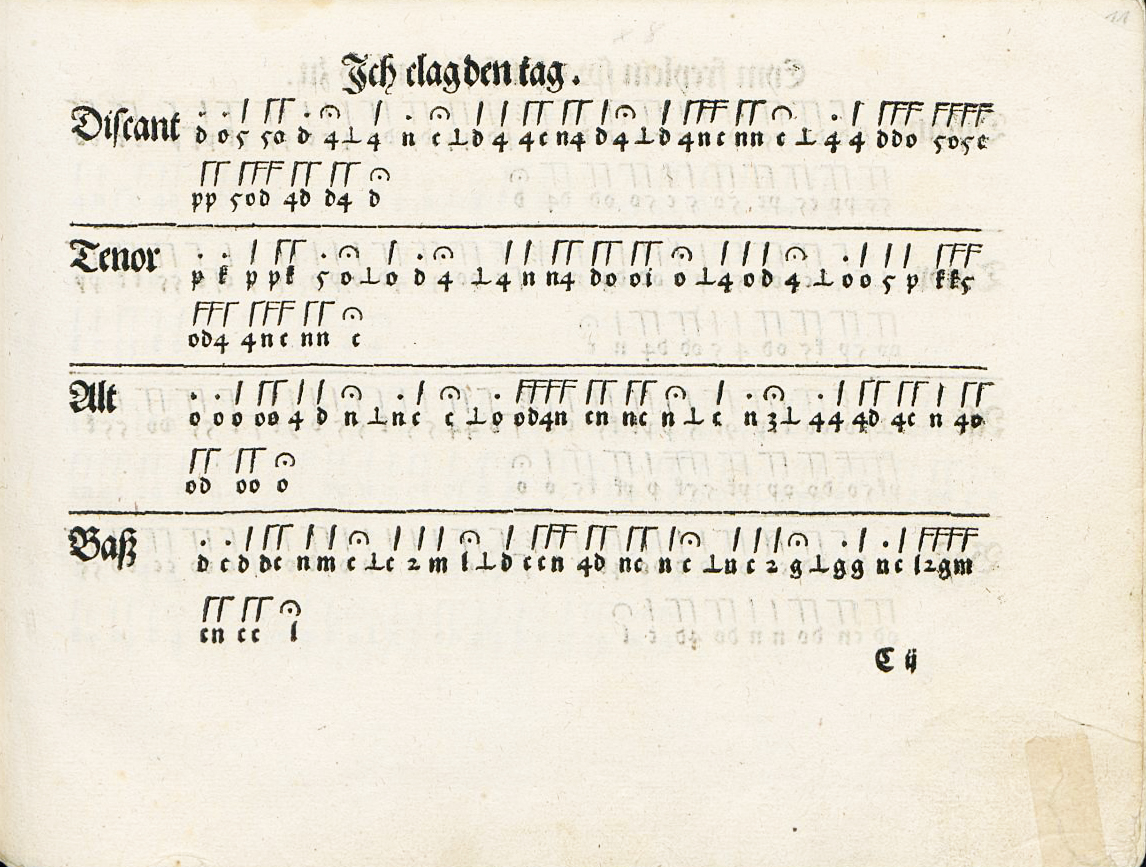 11
Ich clag den tag.
Discant d o 5 5o d 4 ⊥ 4 n c ⊥ d 4 4c n4 d 4 ⊥ d 4nc nn c ⊥ 4 4 ddo 5o5c
pp 5od 4d d4 d
Tenor p k p pk 5 o ⊥ o d 4 ⊥ 4 n n4 do oi o ⊥ 4 od 4 ⊥ o o 5 p kk5
od4 4nc nn c
Alt o o o oo 4 d n ⊥ n c c ⊥ o od4n cn nc n ⊥ c n 3 ⊥ 4 4 4d 4c n 4o
od oo o
Baß d c d dc n m c ⊥ c 2 m l ⊥ d ccn 4d nc n c ⊥ n c 2 g ⊥ g g n c l2gm
cn cc l
C ij